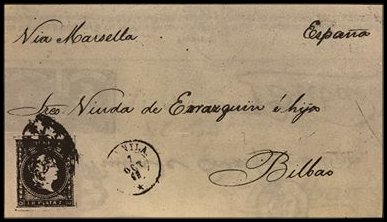 Via Marsella España
Sres Viuda de Errazquin é hijo
Bilbao
NILA